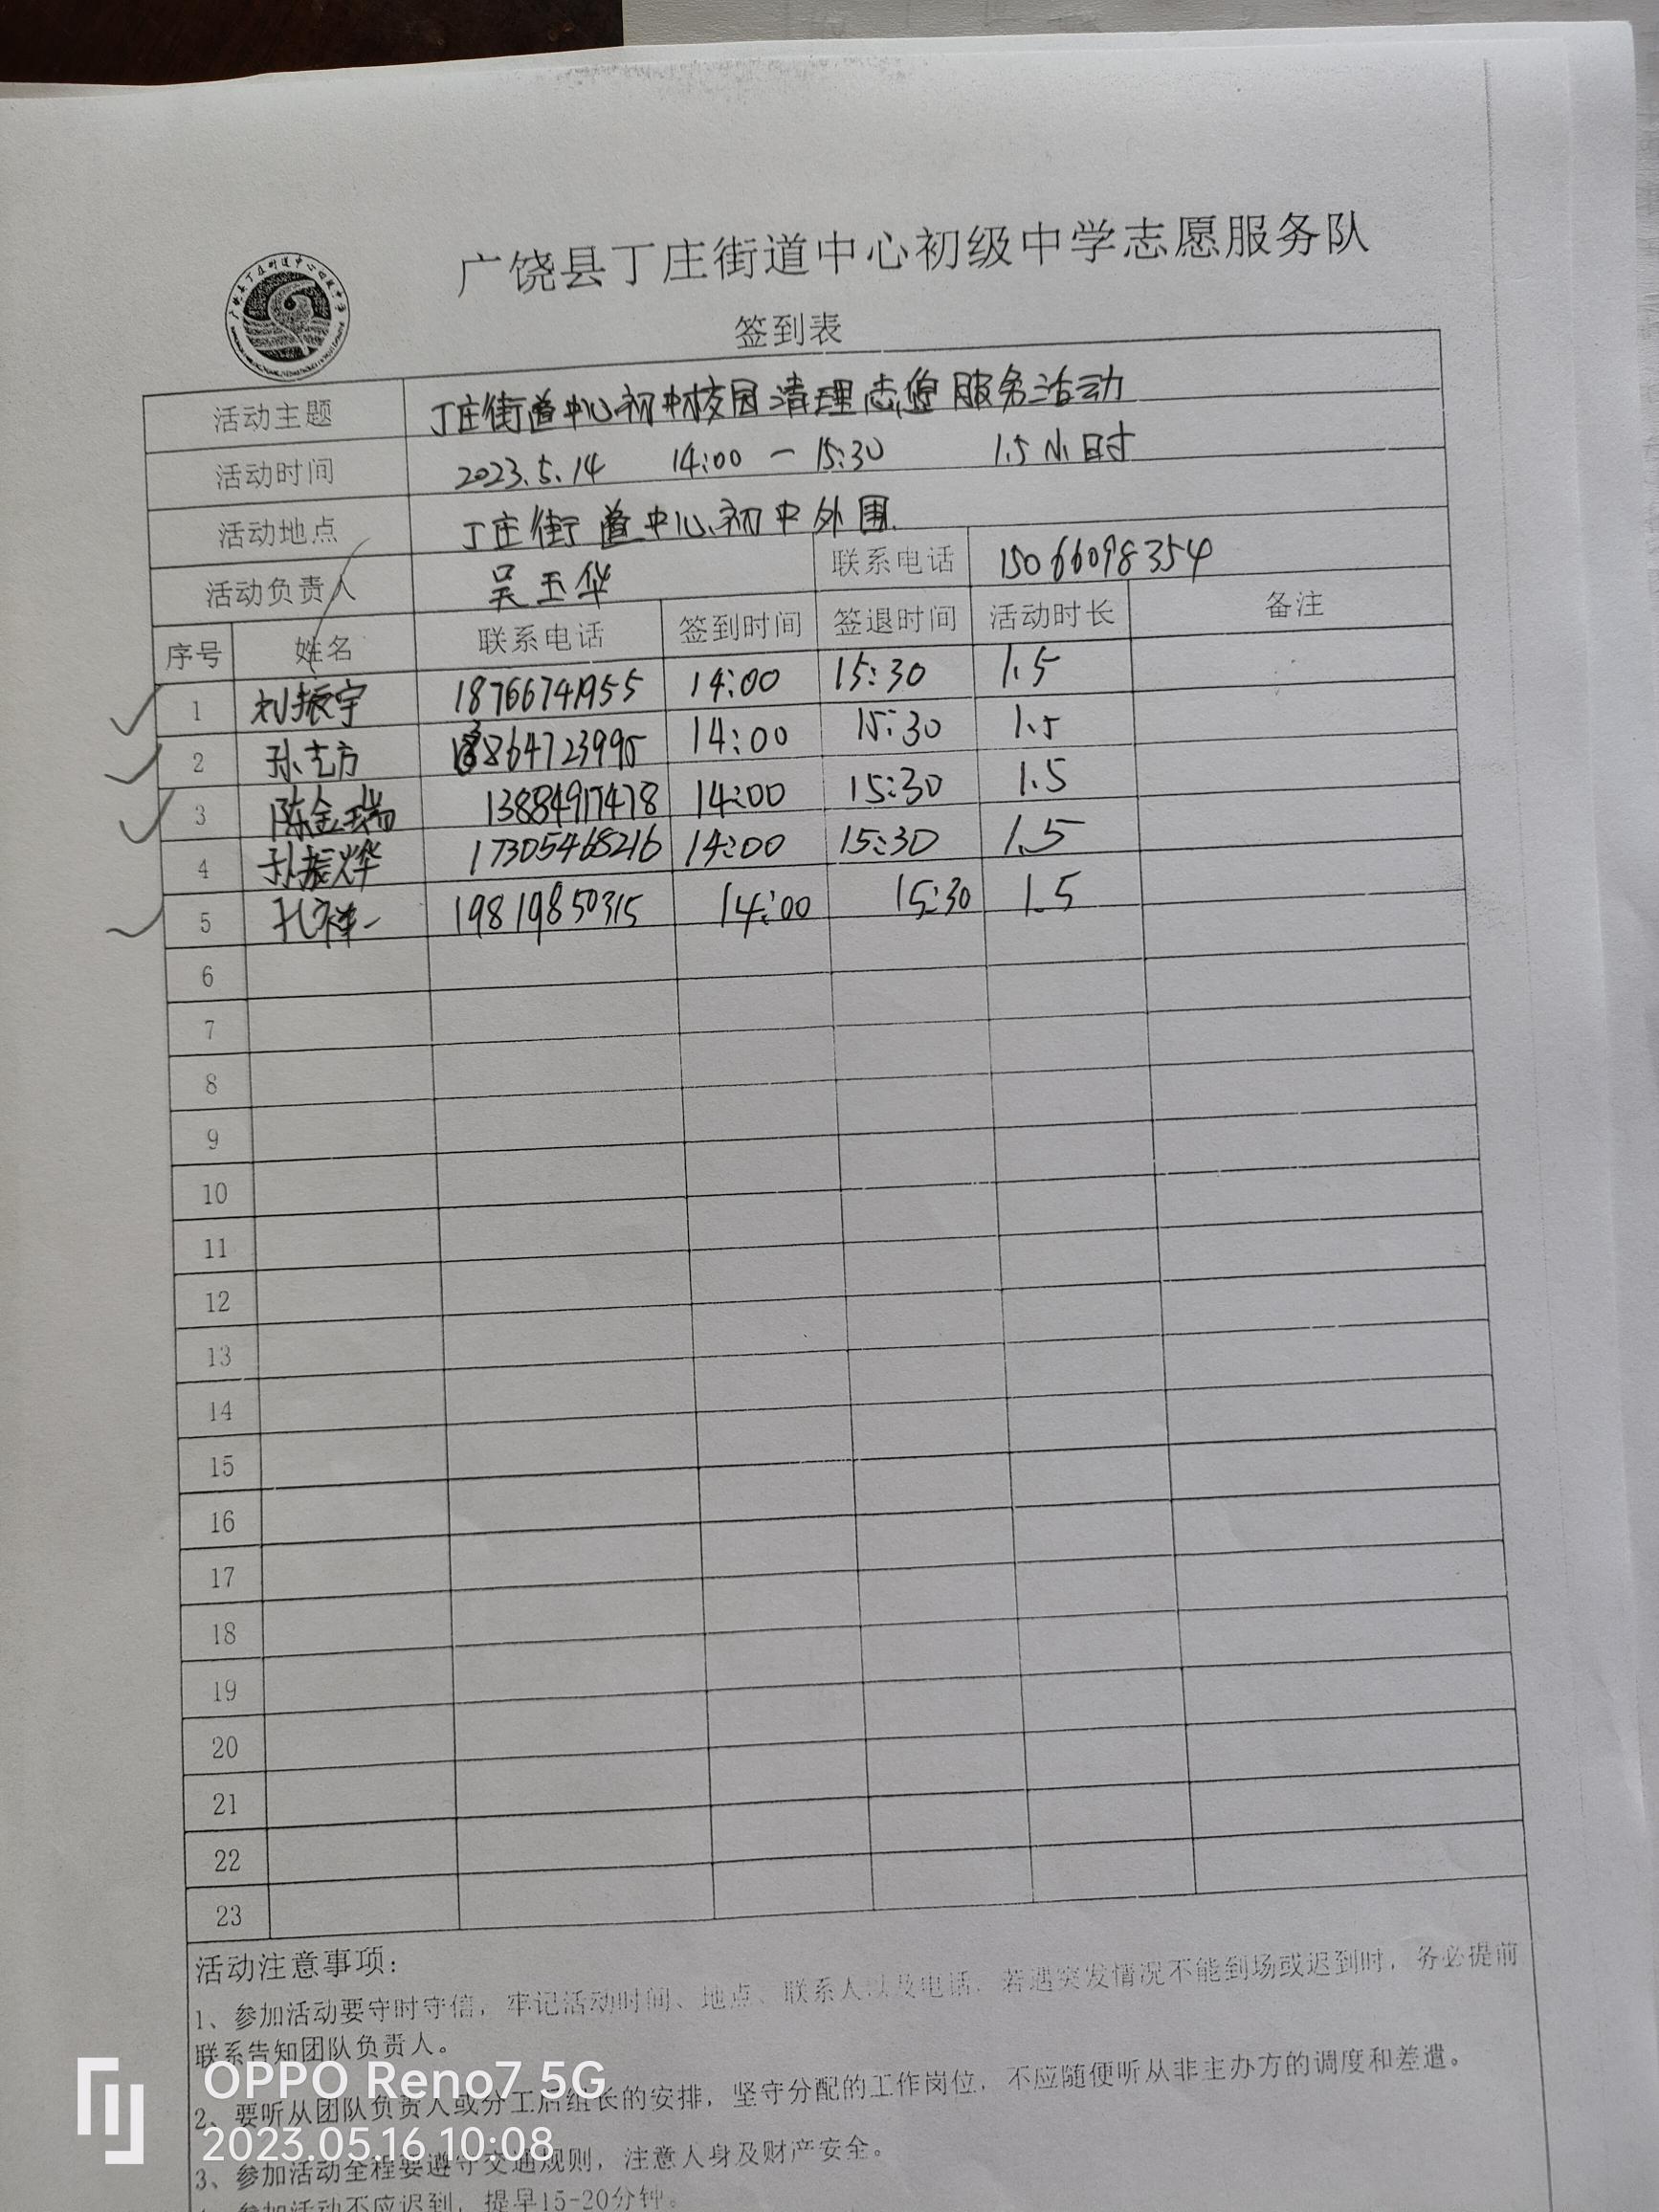 广饶县丁庄街道中心初级中学志愿服务队
签到表
活动主题 丁庄街道中心初中校园清理志愿服务活动
活动时间 2023.5.14 14:00 — 15:30 1.5小时
活动地点 丁庄街道中心初中外围.
活动负责人 吴玉华 联系电话 15066098354
序号 姓名 联系电话 签到时间 签退时间 活动时长 备注
1 刘振宇 18766741955 14:00 15:30 1.5
2 孙志方 14:00 15:30 1.5
3 陈金瑞 13884917478 14:00 15:30 1.5
4 孙振烨 17305468216 14:00 15:30 1.5
5 孔祥一 19819850315 14:00 15:30 1.5
6
7
8
9
10
11
12
13
14
15
16
17
18
19
20
21
22
23
活动注意事项：
1、参加活动要守时守信，牢记活动时间、地点、联系人以及电话，若遇突发情况不能到场或迟到时，务必提前
联系告知团队负责人。
2、要听从团队负责人或分工后组长的安排，坚守分配的工作岗位，不应随便听从非主办方的调度和差遣。
3、参加活动全程要遵守交通规则，注意人身及财产安全。
参加活动不应迟到，提早15-20分钟。
OPPO Reno7 5G
2023.05.16 10:08